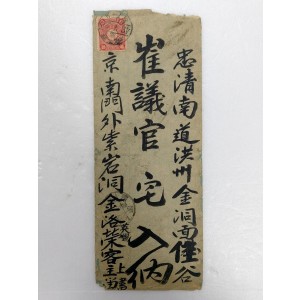 忠清南道洪州金洞面佳谷
崔議官宅入納
京南門外紫岩洞金洛榮客主
上書